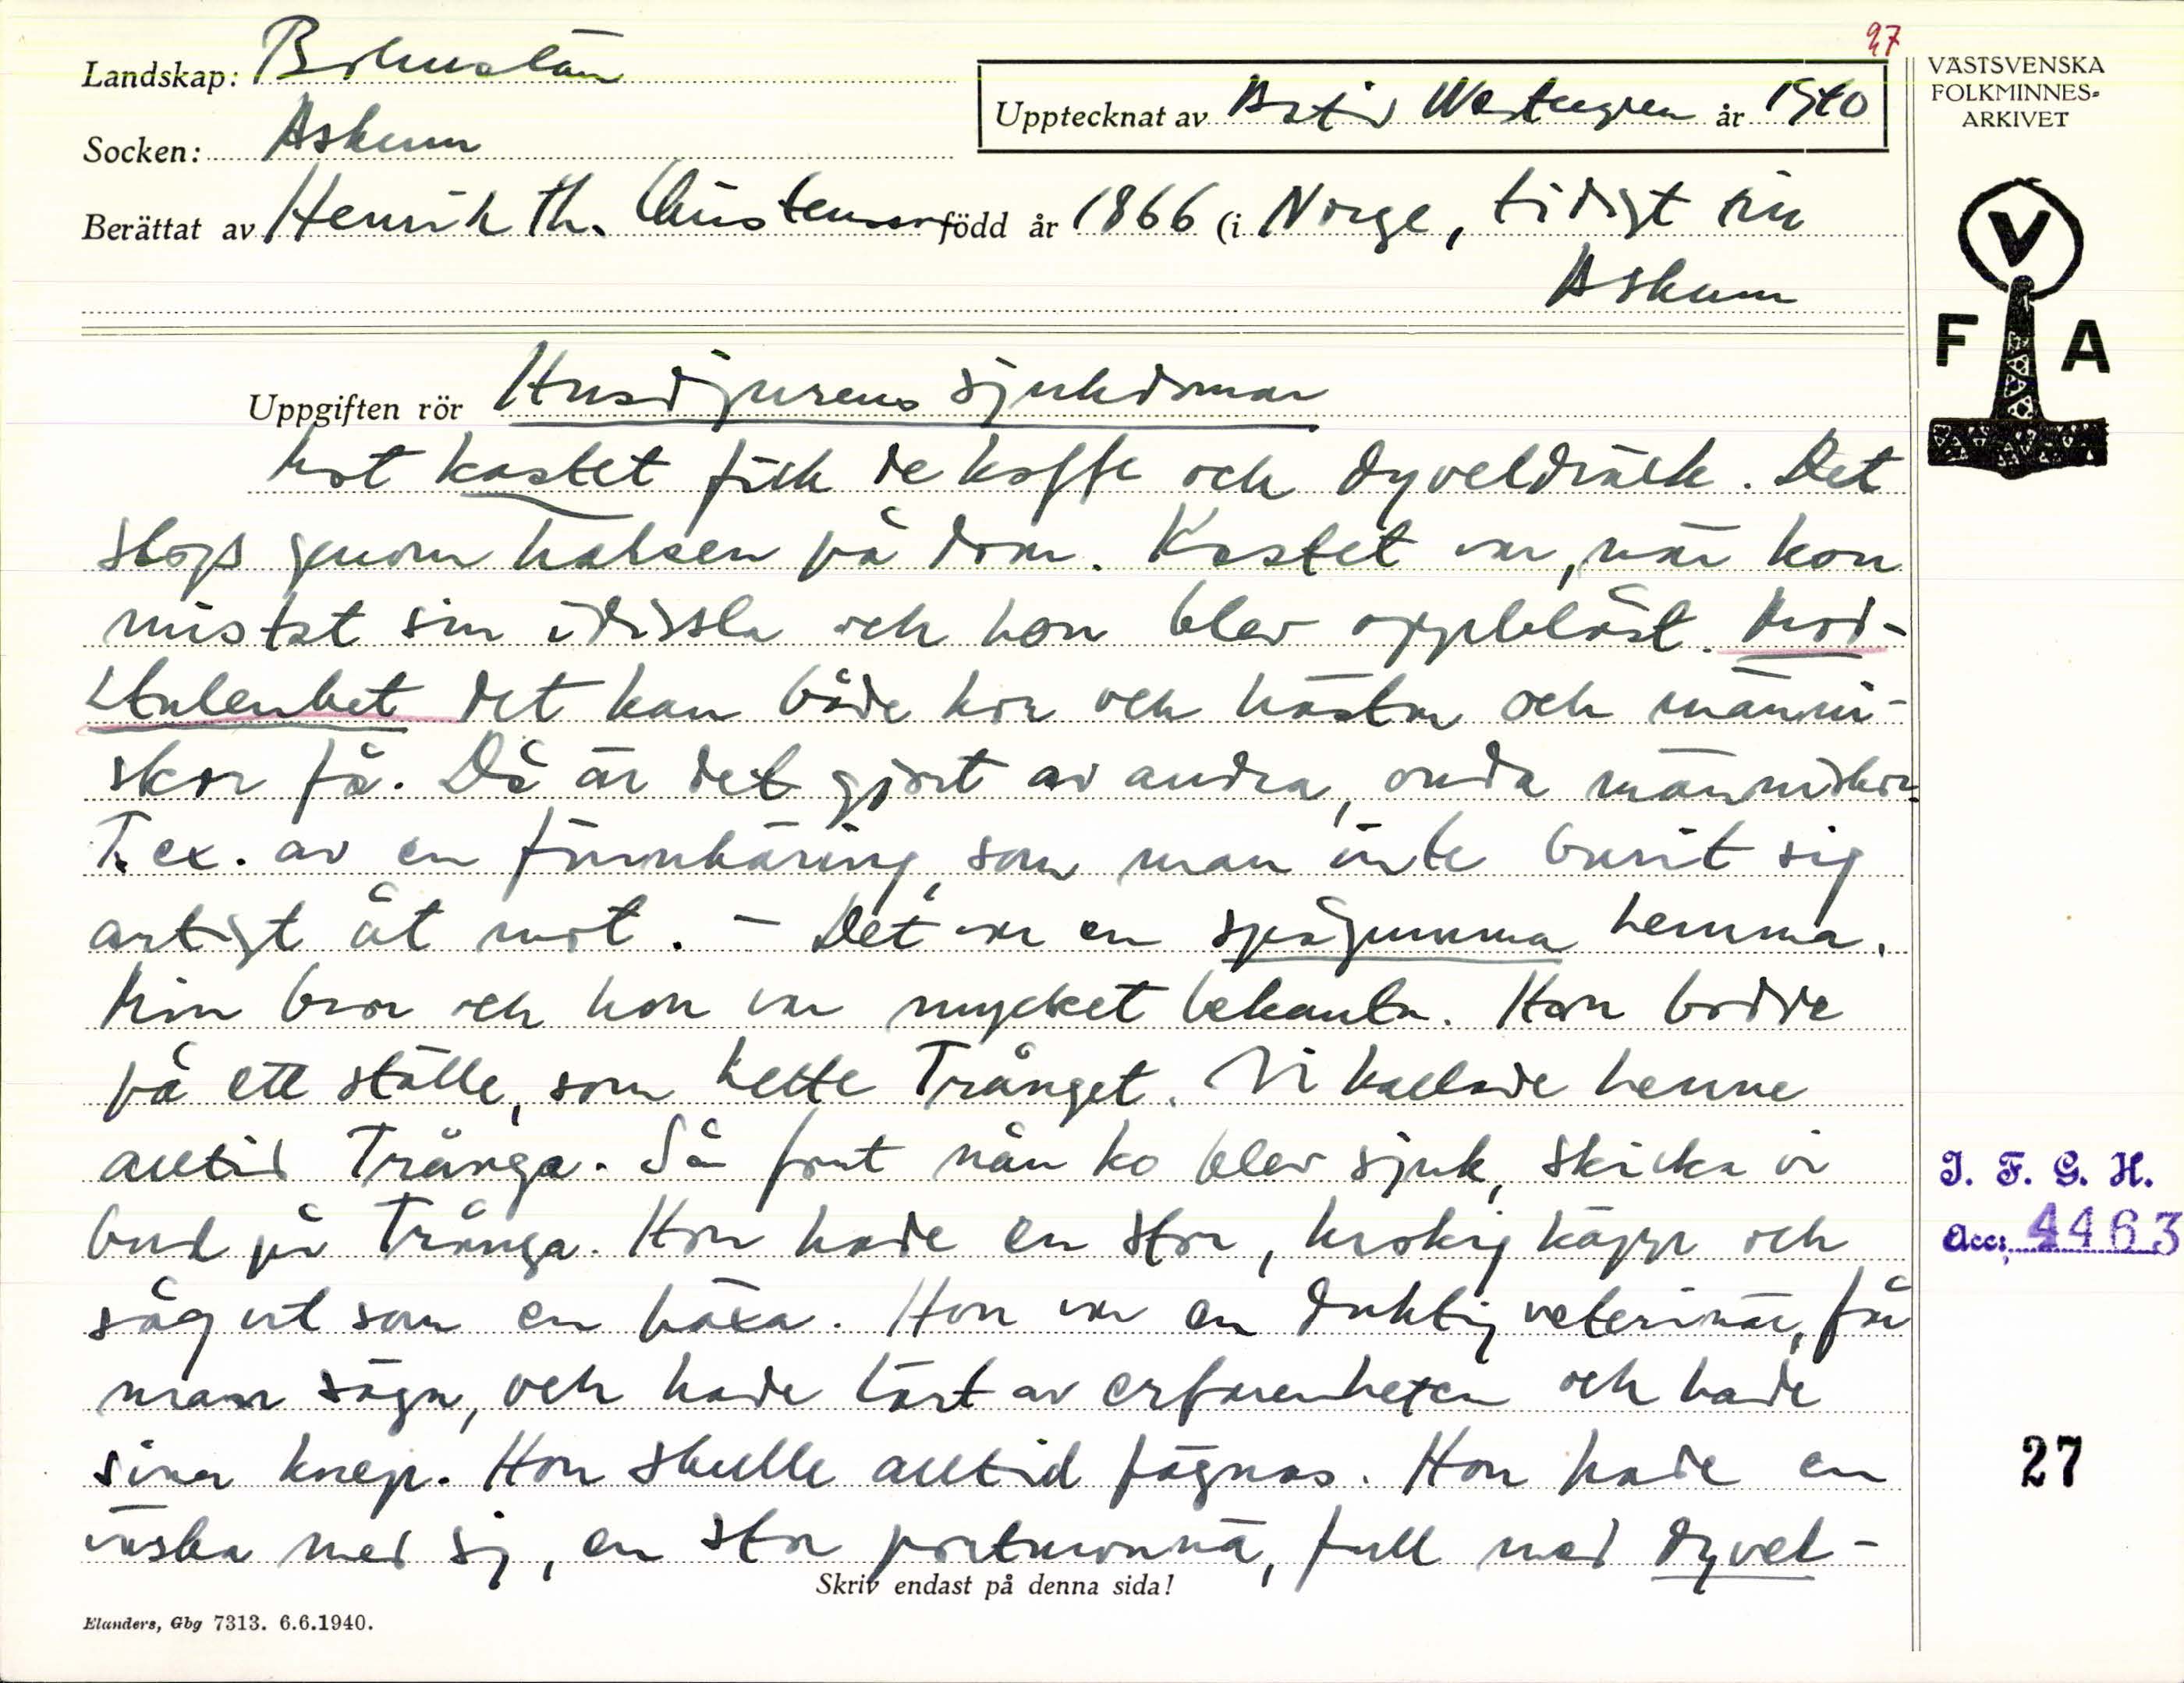 27
Landskap: Bohuslän
VÄSTSVENSKA
FOLKMINNES-
ARKIVET
Upptecknat av Westergren år 1940
Socken: Askum
Berättat av Henrik Th. Christensen född år 1866 (i Norge, tidigt in
Askum
V
F A
Uppgiften rör Husdjurens sjukdomar
Mot kastet fick de kaffe och dyveldräck. Det
slogs genom halsen på dom. Kastet var, när kon
mistat sin idissla och hon blev oppblåst. Mod-
stulenhet det kan både kor och hästar och männi-
skor få. Då är det gjort av andra, onda människor.
T. ex. av en främkäring, som man inte burit sig
artigt åt mot. - Det var en spågumma hemma.
Min bror och hon var mycket bekanta. Hon bodde
på ett ställe, som hette Trånget. Vi kallade henne
alltid Trånga. Så fort nån ko blev sjuk, skicka vi
bud på Trånga. Hon hade en stor, krokig käpp och
såg ut som en häxa. Hon var en duktig veterinär, får
man säga, och hade lärt av erfarenheten och hade
sina knep. Hon skulle alltid fägnas. Hon hade en
väska med sig, en stor portmonnä, full med dyvel-
J. F. G. H.
Acc. 4463
27
Skriv endast på denna sida!
Elanders, Gbg 7313. 6.6.1940.